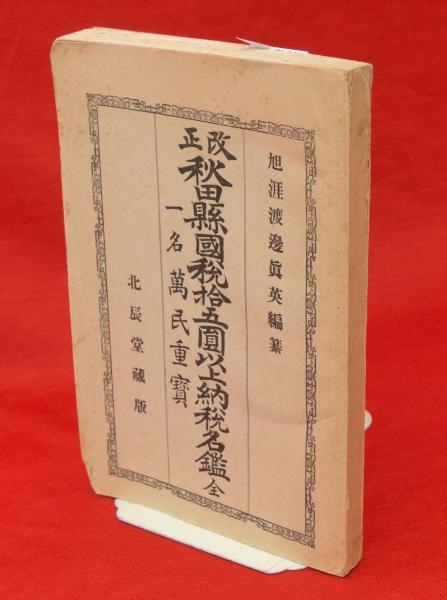 旭涯渡邊眞英編纂
改正
秋田縣國税拾五圓以上納税名鑑全
一名萬民重寶
北辰堂蔵版